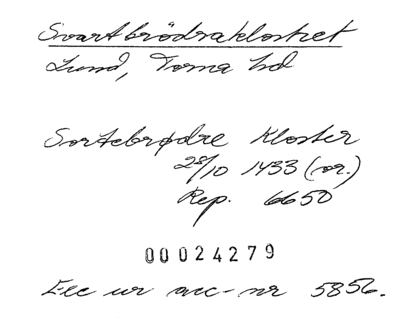 Svartbrödraklostret
Lund, Torna hd
Sortebrødre Kloster
28/10 1433 (or.)
Rep. 6650
00024279
Exc ur acc-nr 5856.